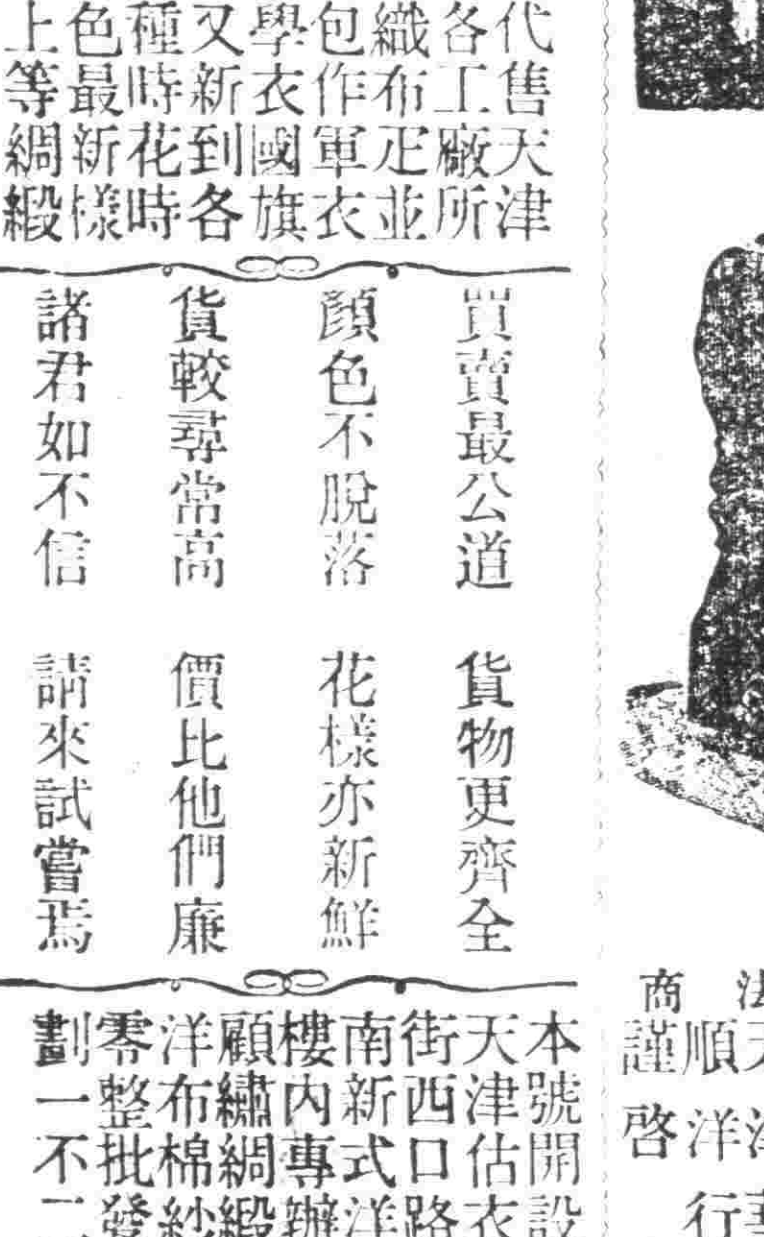 代售天津
各工廠所
織布疋並
包作軍衣
學衣國旗
又新到各
種時花時
色最新樣
上等綢緞
買賣最公道 貨物更齊全
顏色不脫落 花樣亦新鮮
貨較尋常高 價比他們廉
諸君如不信 請來試嘗焉
本號開設
天津估衣
街西口路
南新式洋
樓內專辦
顧繡綢緞
洋布棉紗
零整批發
劃一不二
法
商
天津
順洋行
謹啓